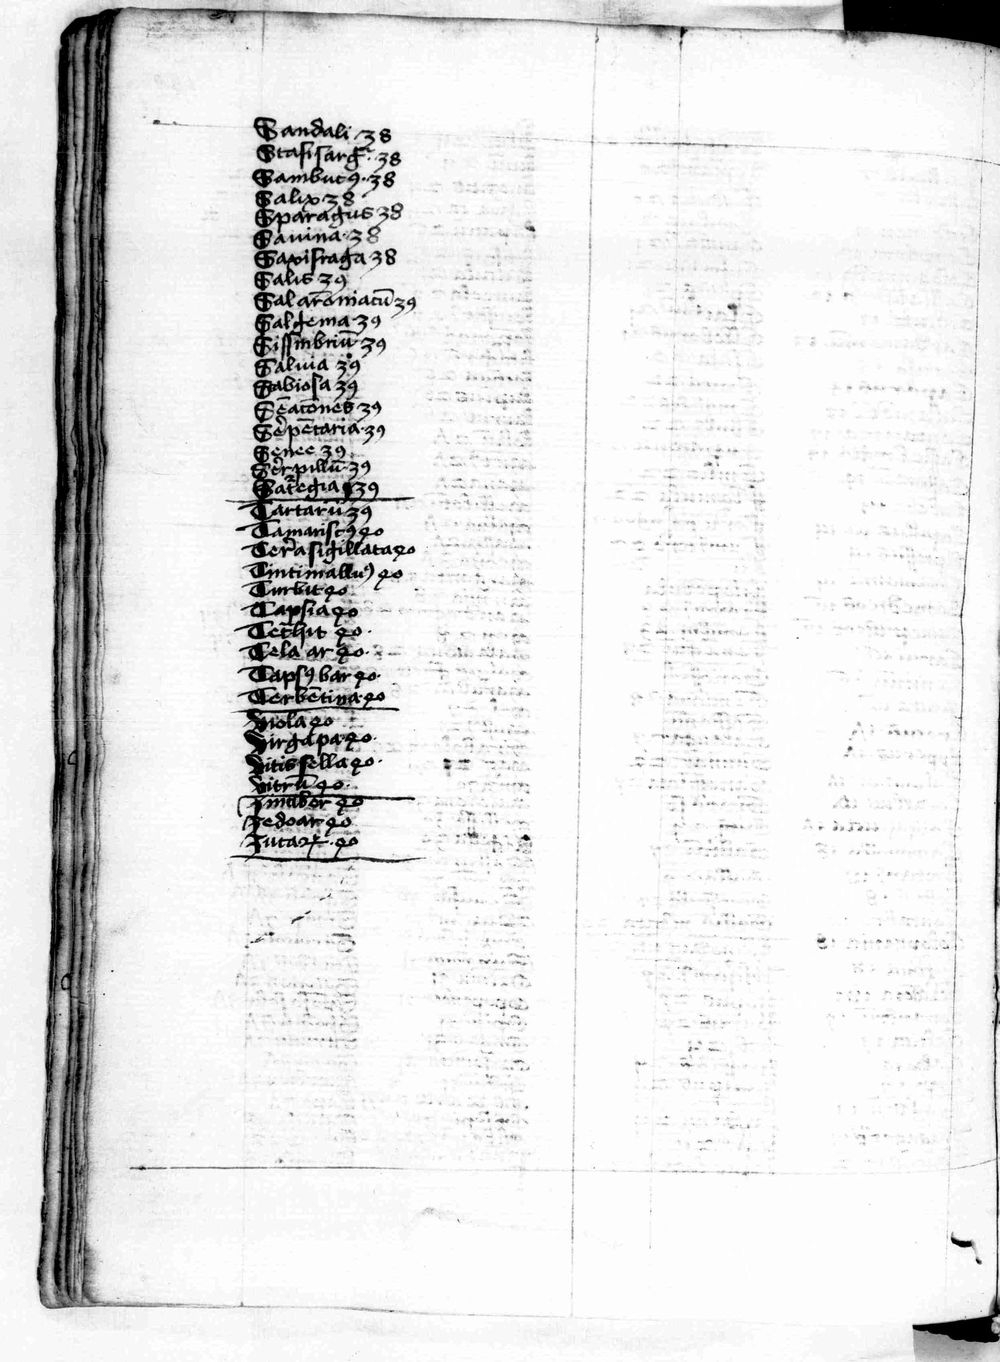 Sandali 38
Stafisarg̃. 38
Sambucꝯ. 38
Salix 38
Sparagus 38
Sauina. 38
Saxifraga 38
Salis 39
Sal arõmaticũ 39
Salgema 39
Sisimbriũ 39
Saluia 39
Sabiosa 39
Sẽacõnes 39
Sẽpẽtaria. 39
Senec 39
Serpillũ. 39
Satregia 39
Tartarũ 39
Tamariscꝯ 40
Terra sigillata 40
Tintimallus 40
Turbit 40
Tapsia 40
Tethit 40.
Tela ar 40.
Tapsꝯ bar 40.
Terbẽtina. 40
Viola 40
Virga pa. 40.
Vitis sella 40.
Vitrũ 40.
Zinziber 40
Zedoar 40
Zucar. 40